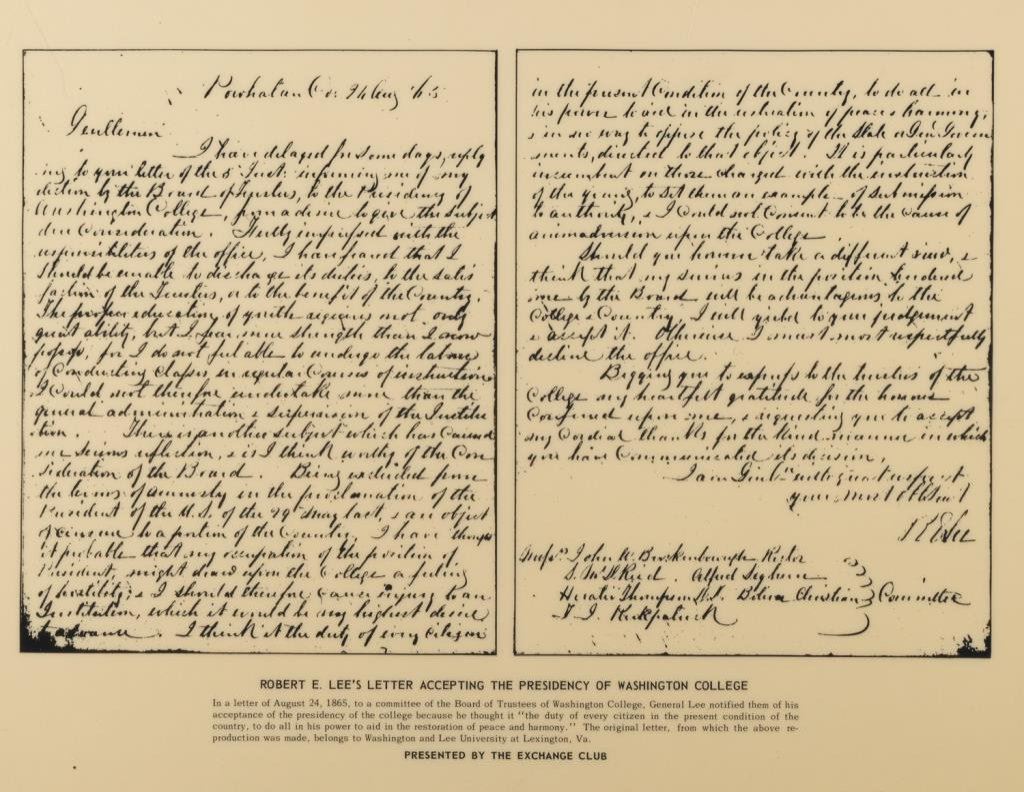 Powhatan Co: 24 Aug '65
Gentlemen
I have delayed for some days, reply
ing to your letter of the 5 Inst: informing me of my
election by the Board of Trustees, to the Presidency of
Washington College, from a desire to give the subject
due Consideration. Fully impressed with the
responsibilities of the office, I have feared that I
should be unable to discharge its duties, to the satis
faction of the Trustees, or to the benefit of the Country.
The proper education of youth requires not only
great ability, but I fear more strength than I now
possess, for I do not feel able to undergo the labour
of Conducting Classes in regular Courses of instruction
I Could not therefore undertake more than the
general administration & supervision of the Institu
tion. There is another subject which has Caused
me Serious reflection, & is I think worthy of the Con
sideration of the Board. Being excluded from
the terms of amnesty in the proclamation of the
President of the U.S. of the 29 May last, & an object
of Censure to a portion of the Country, I have thought
it probable that my occupation of the position of
President, might draw upon the College a feeling
of hostility; & I should therefore Cause injury to an
Institution, which it would be my highest desire
to advance. I think it the duty of every Citizen
in the present Condition of the Country, to do all in
his power to aid in the restoration of peace & harmony,
& in no way to oppose the policy of the State or Genl Govern
ments, directed to that object. It is particularly
incumbent on those charged with the instruction
of the young, to set them an example of submission
to authority, & I Could not Consent to be the Cause of
animadversion upon the College
Should you however take a different view, &
think that my services in the position tendered
me by the Board will be advantageous to the
College & Country, I will yield to your judgement
& accept it. Otherwise I must most respectfully
decline the office.
Begging you to express to the trustees of the
College my heartfelt gratitude for the honour
Conferred upon me, & requesting you to accept
my Cordial thanks for the kind manner in which
you have Communicated its decision,
I am Gentn with great respect
your most obt Servt
R E Lee
Messrs John W. Brockenbrough Rector
S. McD. Reid. Alfred Leyburn
Horatio Thompson D.D. Bolivar Christian Committee
T. J. Kirkpatrick
ROBERT E. LEE'S LETTER ACCEPTING THE PRESIDENCY OF WASHINGTON COLLEGE
In a letter of August 24, 1865, to a committee of the Board of Trustees of Washington College, General Lee notified them of his
acceptance of the presidency of the college because he thought it "the duty of every citizen in the present condition of the
country, to do all in his power to aid in the restoration of peace and harmony." The original letter, from which the above re-
production was made, belongs to Washington and Lee University at Lexington, Va.
PRESENTED BY THE EXCHANGE CLUB